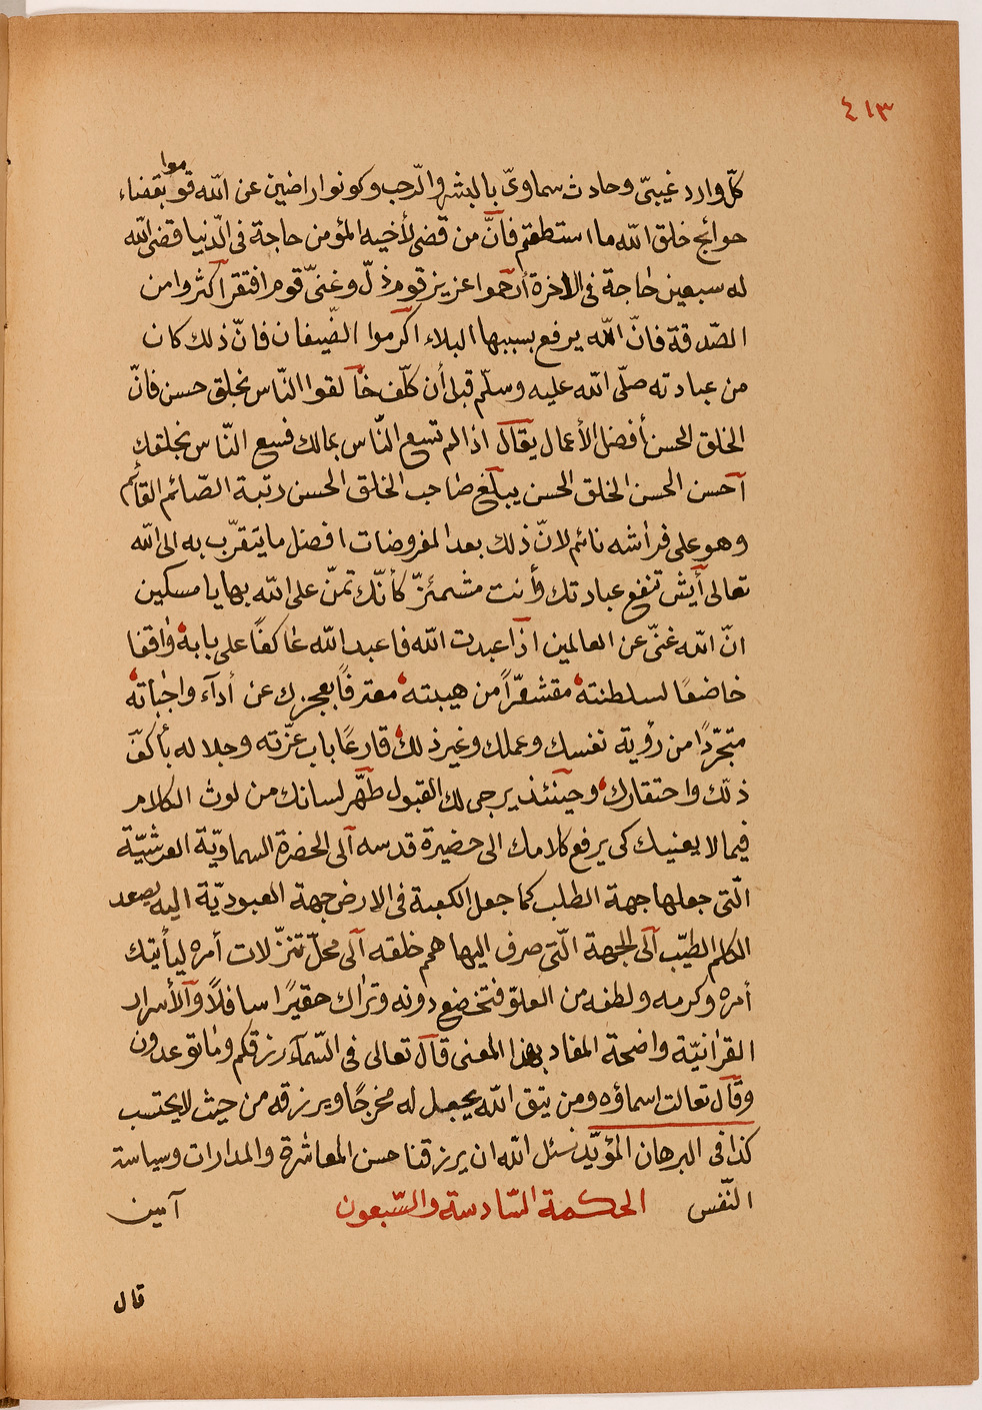 ٤١٣
كلّ وارد غيبىّ وحادث سماوىّ بالبشر والرّحب وكونوا راضين عن الله قوموا بقضاء
حوائج خلق الله ما استطعتم فانّ من قضى لأخيه المؤمن حاجة فى الدّنيا قضى الله
له سبعين حاجة فى الاخرة أرحموا عزيز قوم ذلّ وغنىّ قوم افتقر أكثروا من
الصّدقة فانّ الله يرفع بسببها البلاء اكرموا الضّيفان فانّ ذلك كان
من عبادته صلّى الله عليه وسلّم قبل أن كلّف خآلقوا النّاس بخلق حسن فانّ
الخلق الحسن أفضل الأعمال يقال اذا لم تسع النّاس بمالك فسع النّاس بخلقك
آحسن الحسن الخلق الحسن يبلغ صاحب الخلق الحسن رتبة الصّائم القائم
وهو على فراشه نائم لانّ ذلك بعد المفروضات افضل ما يتقرّب به الى الله
تعالى أيش تنفع عبادتك وأنت مشمئزّ كأنّك تمنّ على الله بها يا مسكين
انّ الله غنىّ عن العالمين اذا عبدت الله فاعبد الله عاكفًا على بابه واقفا
خاضعًا لسلطنته مقشعرّاً من هيبته معترفًا بعجزك عن أدآء واجباته
متجرّدًا من رؤية نفسك وعملك وغير ذلك قارعًا باب عزّته وجلاله بأكفّ
ذلّك واحتقارك وحينئذ يرجى لك القبول طهّر لسانك من لوث الكلام
فيما لا يعنيك كى يرفع كلامك الى حضيرة قدسه آلى الحضرة السماويّة العرشيّة
الّتى جعلها جهة الطلب كما جعل الكعبة فى الارض جهة العبوديّة اليه يصعد
الكلم الطيّب آلى الجهة الّتى صرف اليها همم خلقه آلى محلّ تنزّلات أمره ليأتيك
أمره وكرمه ولطفه من العلوّ فتخضع دونه وتراك حقيرًا سافلاً وآلأسرار
القرانيّة واضحة المفاد بهذا المعنى قال تعالى فى السّمآء رزقكم وما توعدون
وقال تعالت اسماؤه ومن يتق الله يجعل له مخرجًا ويرزقه من حيث لا يحتسب
كذا فى البرهان المؤيّد نسئل الله ان يرزقنا حسن المعاشرة والمدارات وسياسة
النّفس الحكمة السّادسة والسّبعون آمين
قال